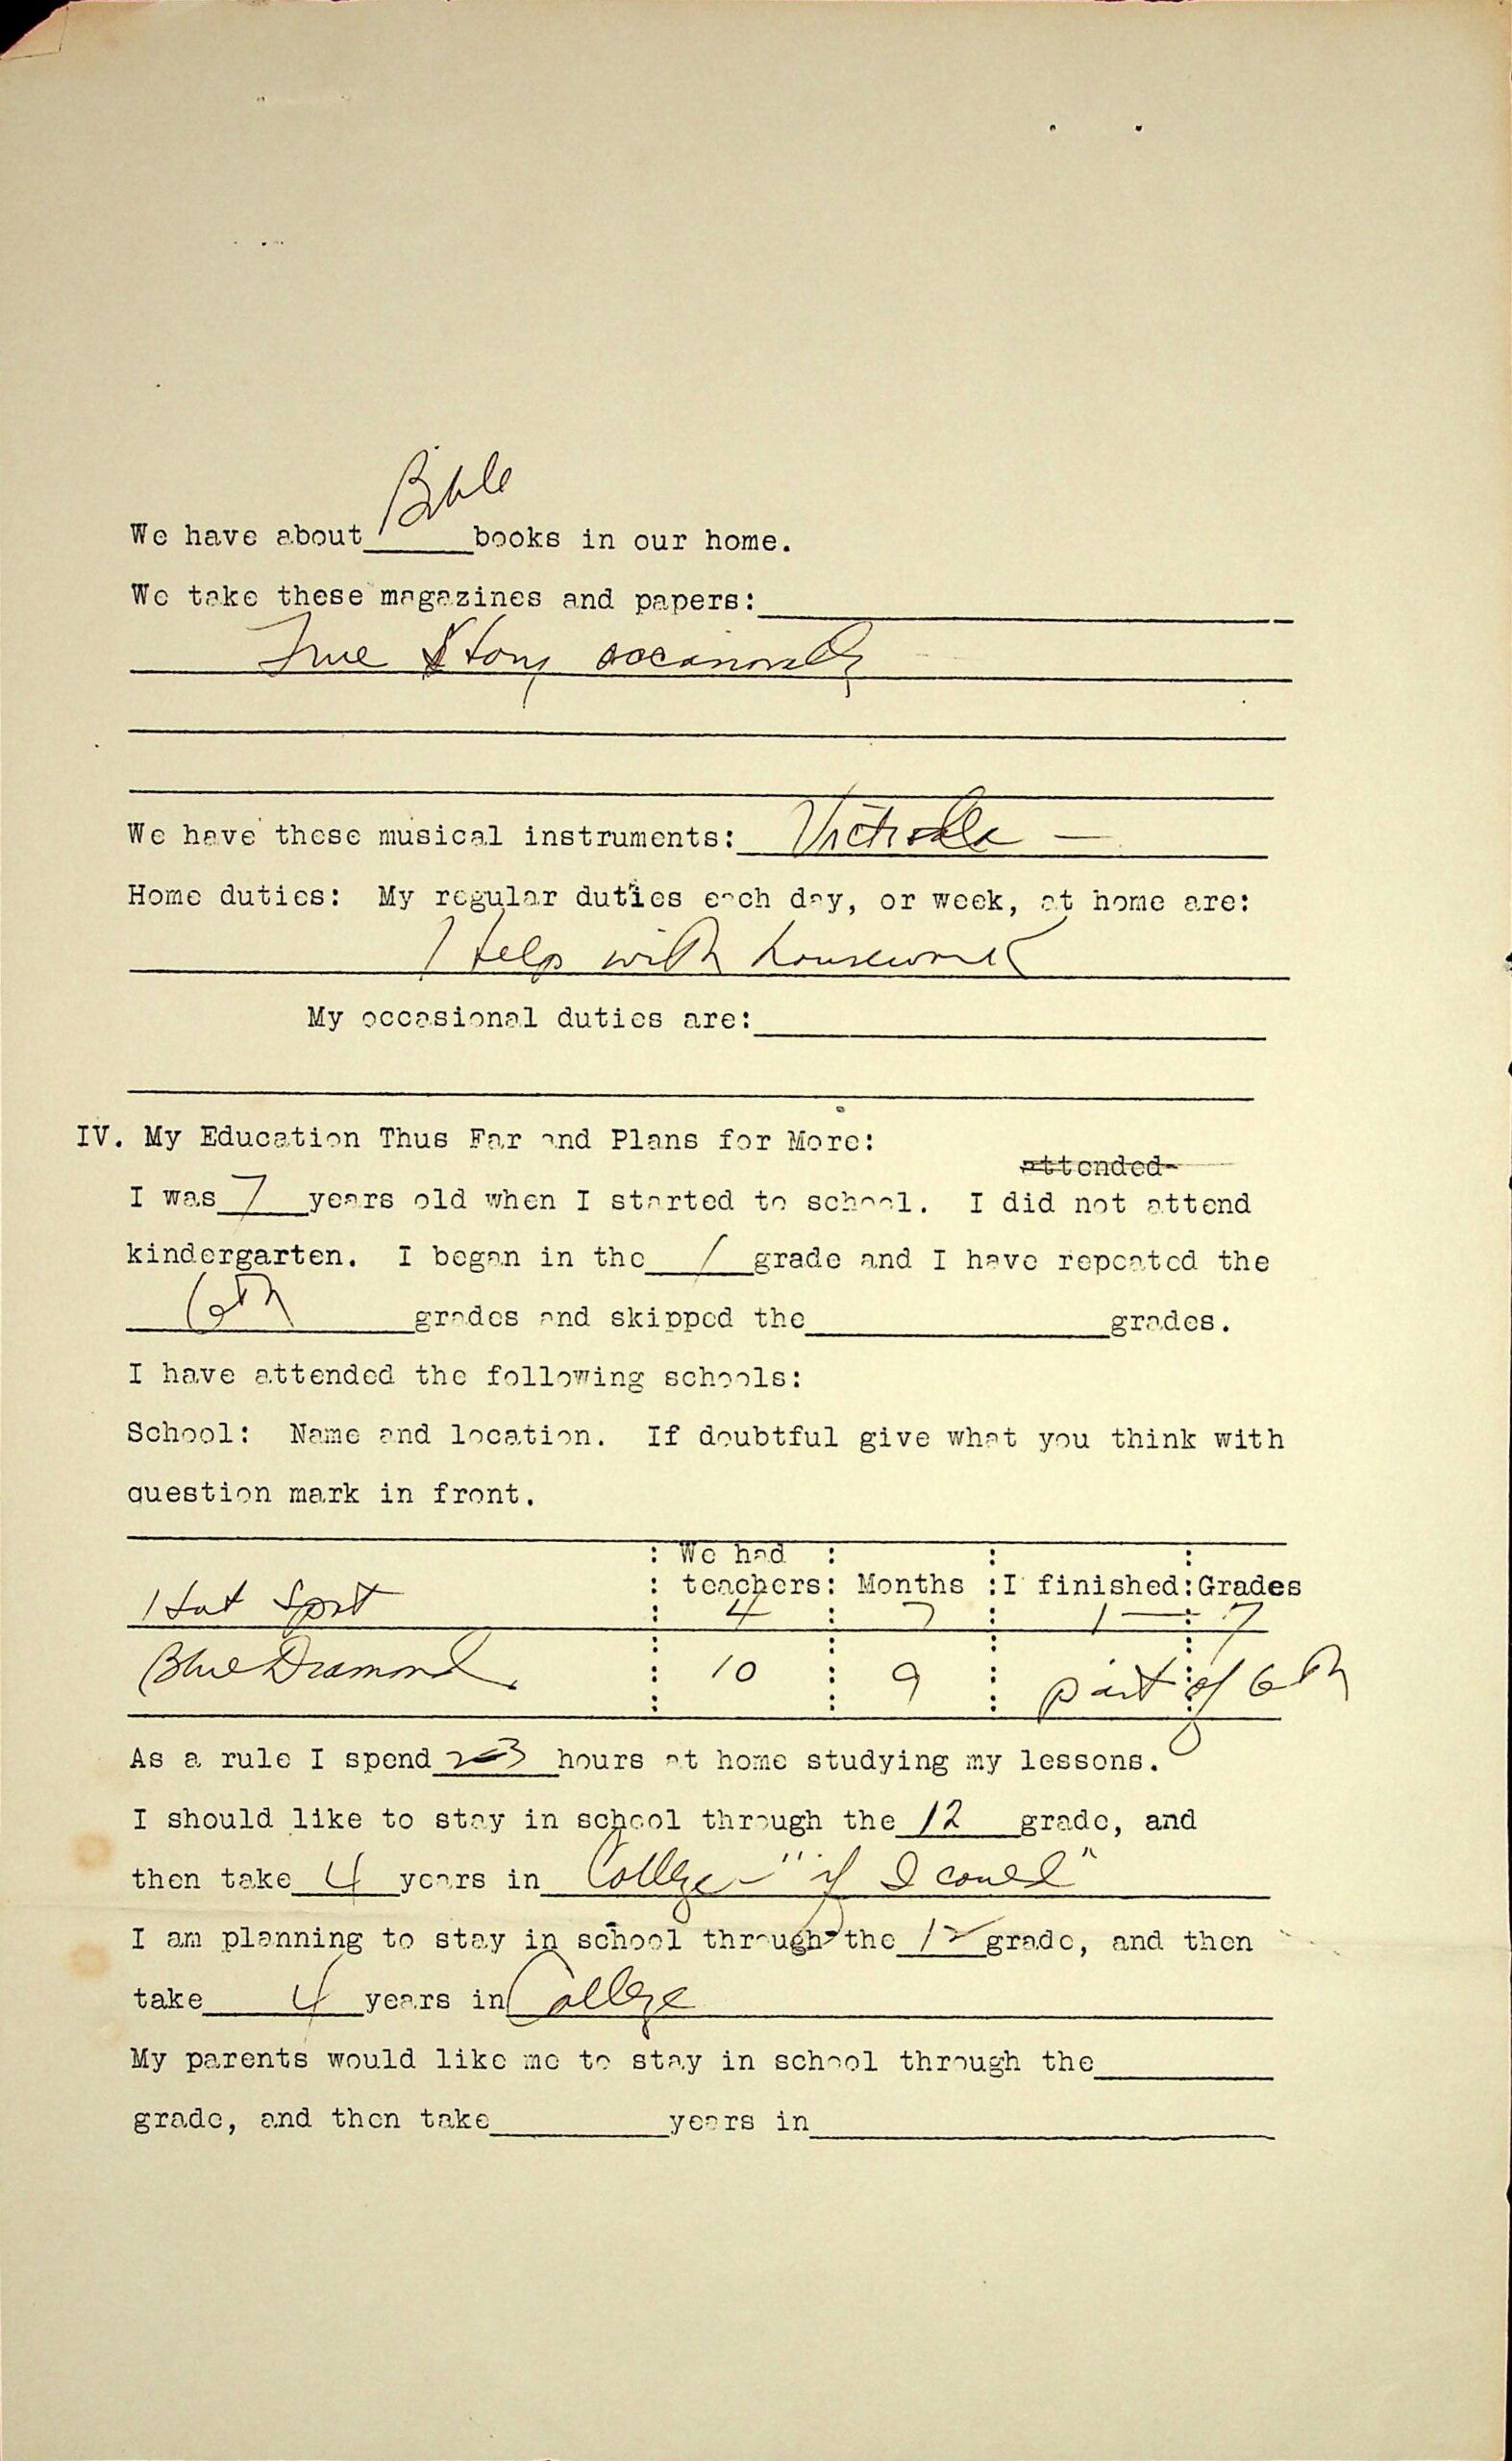 Bible
We have about____books in our home.
We take these magazines and papers:
True Story occasionally
We have these musical instruments: Victrolla —
Home duties: My regular duties each day, or week, at home are:
Help with housework
My occasional duties are:
IV. My Education Thus Far and Plans for More:
attended
I was 7 years old when I started to school. I did not attend
kindergarten. I began in the 1 grade and I have repeated the
6th grades and skipped the grades.
I have attended the following schools:
School: Name and location. If doubtful give what you think with
question mark in front.
: We had : : :
: teachers: Months :I finished:Grades
Hot Spot : 4 : 7 : 1 — : 7
Blue Diamond : 10 : 9 : part of 6th
As a rule I spend 2-3 hours at home studying my lessons.
I should like to stay in school through the 12 grade, and
then take 4 years in College - "if I could"
I am planning to stay in school through the 12 grade, and then
take 4 years in College
My parents would like me to stay in school through the
grade, and then take years in